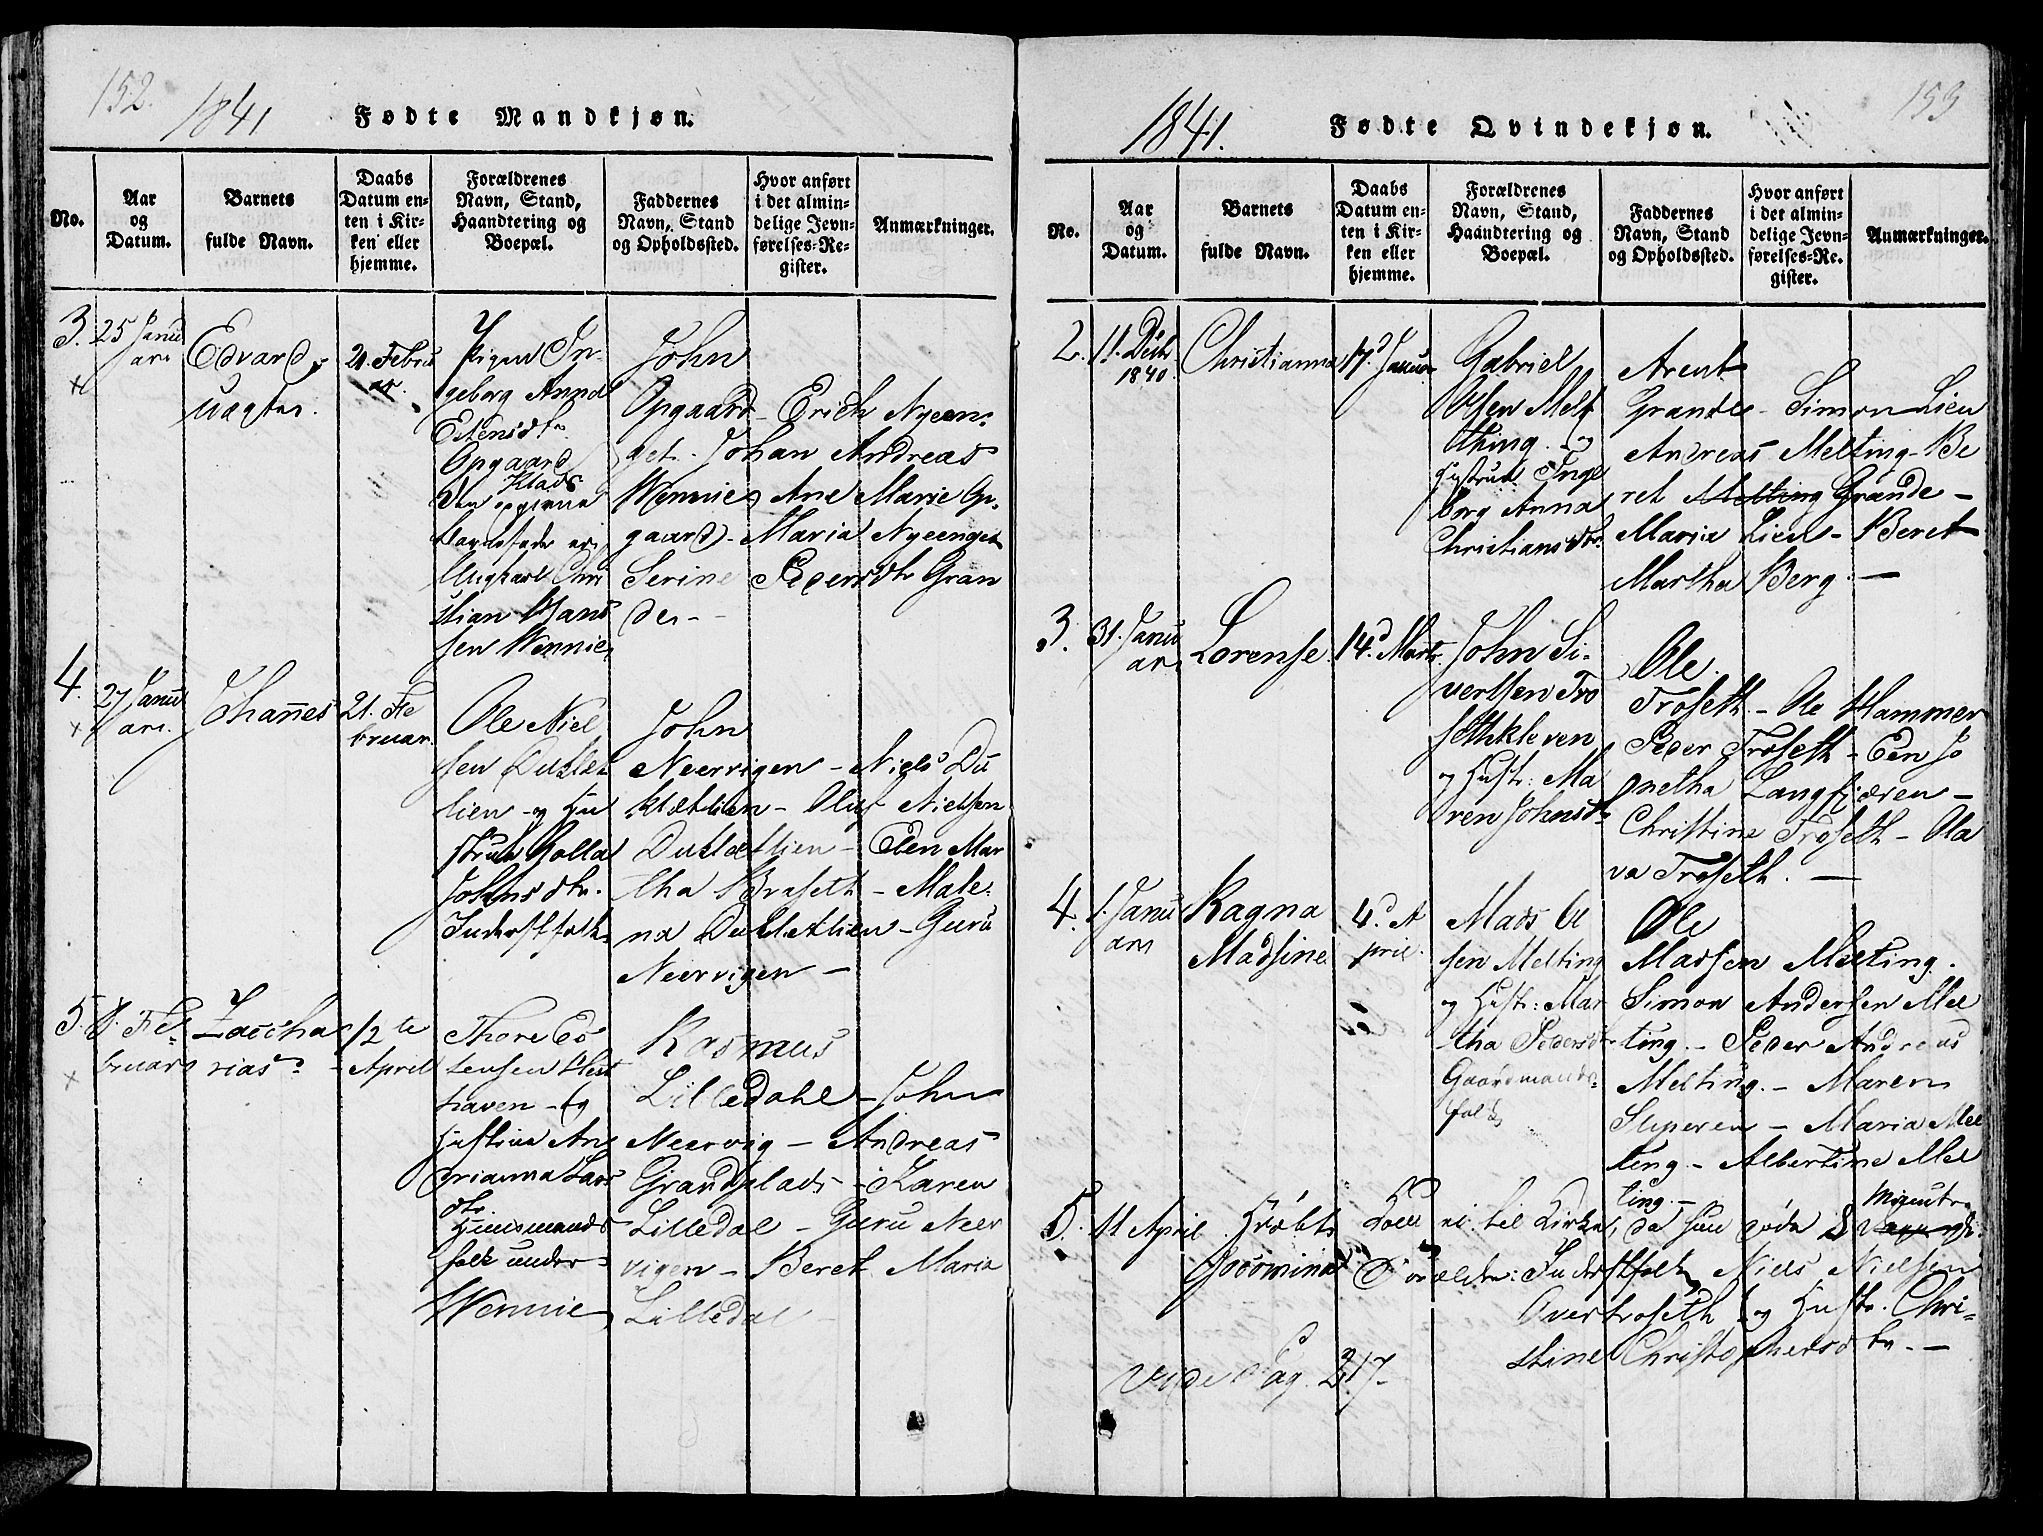 152.
1841
Fødte Mandkjøn.
No.
Aar
og
Datum.
Barnets
fulde Navn.
Daabs
Datum en-
ten i Kir-
ken eller
hjemme.
Forældrenes
Navn, Stand,
Haandtering og
Boepæl.
Faddernes
Navn, Stand
og Opholdssted.
Hvor anført
i det almin-
delige Jevn-
førelses-Re-
gister.
Anmærkninger.
3.
25 Janu
ari
Edvard
21. Febru
ar.
Pigen In-
geborg Anna
Estensdtr
Opgaard
Klads
Christian Hans
sen Wennie
John
Opgaard - Erich Nyeen-
get. Johan Andreas
Wennie, Ane Marie Op-
gaard - Maria Nyeenget
Serine Pedersdtr Gran
der -
4.
27 Janu
ari.
Johannes
21. Fe
bruar.
Ole Niel
sen
lien - og Hu
struе
Johnsdtr.
Inderstfolk
John
Neervigen - Niels Du
klætlien - Oluf Nielsen
Duklætlien - Elen Mar
tha Braseth - Male-
na Duklætlien - Guru
Neervigen -
5.
8. Fe-
bruari
Zaccha
rias
12te
April
Thore Es
tensen Hest
haven - og
Hustrue An
drianna Lars
dtr.
Huusmands
folk under
Wennie
Rasmus
Lilledahl - John
Neervig - Andreas
Grandplads - Karen
Lilledal - Guru Neer
vigen - Beret Maria
Lilledal -
153
1841.
Fødte Qvindekjøn.
No.
Aar
og
Datum.
Barnets
fulde Navn.
Daabs
Datum en-
ten i Kir-
ken eller
hjemme.
Forældrenes
Navn, Stand,
Haandtering og
Boepæl.
Faddernes
Navn, Stand
og Opholdssted.
Hvor anført
i det almin-
delige Jevn-
førelses-Re-
gister.
Anmærkninger.
2.
11. Decbr
1840.
Christianna
17d Januar
Gabriel
Olsen Melt
thing - og
Hustrue Inge
borg Anna
Christiansdtr.
Arent
Grande - Simon Lien
Andreas Melting - Be
ret Melting Grande -
Maria Lien - Beret
Martha Berg. -
3.
31. Janu
ari
Lorense
14d Marts
John Si-
vertsen Tro
sethkleven
og Hustr: Ma
ren Johnsdtr
Ole
Troseth - Ole Hammer
Peder Troseth - Elen Jo
netha Langfjæren -
Christine Troseth - Ola
va Troseth. -
4.
1. Janu
ari
Ragna
Madsine
4d A
pril.
Mads Ol
sen Melting
og Hustr: Mar
tha Pedersdtr
Gaardmands-
folk
Ole
Madsen Melting.
Simon Andersen Mel
ting - Peder Andreas
Melting. - Maren
Stuperen - Maria Mel
ting - Albertine Mel
ting. -
5.
11 April
Hjdbt
Gjormina
Kom ei til Kirke, da hun døde 8
Minutr
Forældre: Inderstfolk Niels Nielsen
Overtroseth og Hustr. Chri-
stine Christophersdtr. -
Vide Pag. 217-